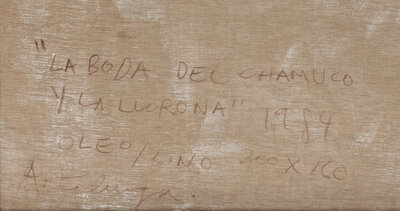 "LA BODA DEL CHAMUCO
Y LA LLORONA" 1984
OLEO/LINO 200 X 160
A.